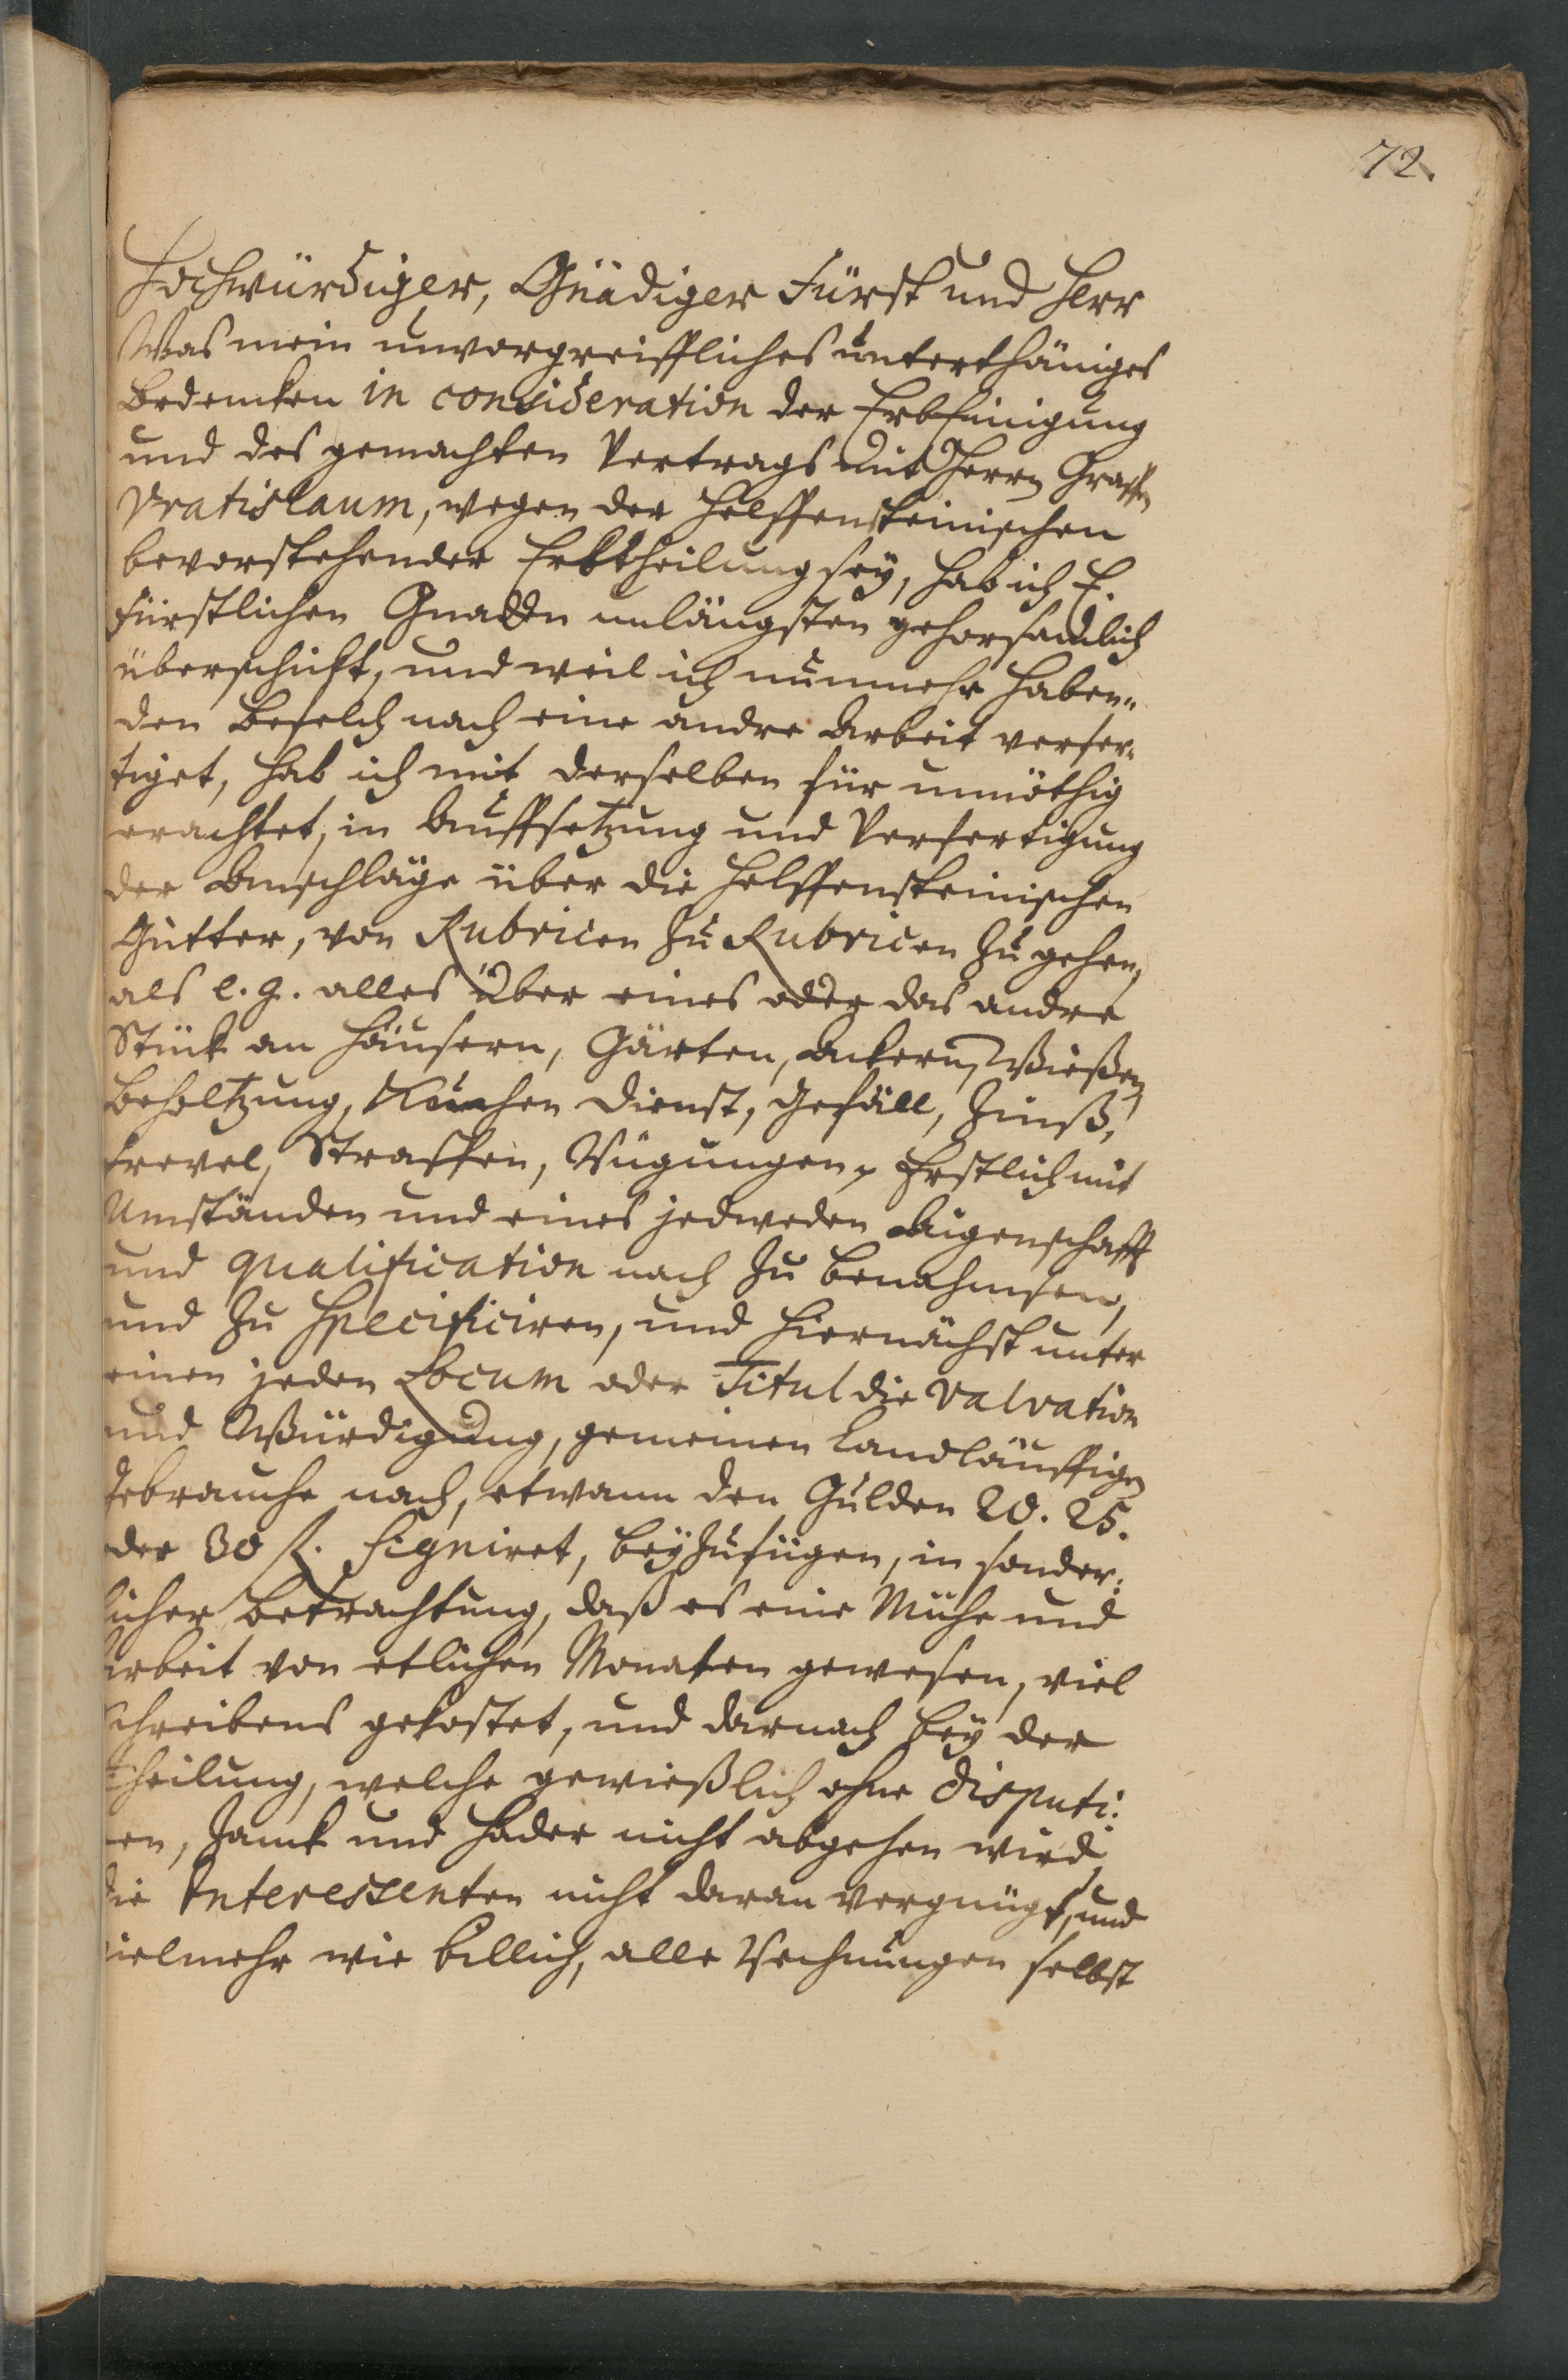 72.
Hochwürdiger, Gnädiger Fürst und Herr
Was mein unvorgreiffliches unterthäniges
Bedencken in consideration der Erb Einigung
und des gemachten Vertrags mit Herrn Graffen
Vratislaum, wegen der Helffensteinischen
bevorstehender Erbtheilung sey, hab ich E.
Fürstlichen Gnaden unlängsten gehorsamlich
überschickt, und weil ich nunmehr haben-
den Befelch nach eine andre Arbeit verfer-
tiget, hab ich mit derselben für unnöthig
erachtet, in Auffsetzung und Verfertigung
der Anschläge über die Helffensteinischen
Gütter, von Rubricen zu Rubricen zu gehen,
als e. g. alles über eines oder das andre
Stück an Häusern, Gärten, Ackern, Wießen,
Beholtzung, Kuchen Dienst, Gefäll, Zinß,
Frevel, Straffen, Rügungen, Erstlich mit
Umständen und eines jedweden Aigenschafft
und qualification nach zu benahmsen,
und zu specificiren, und hiernächst unter
einen jeden Locum oder Titul die Valvation
und Würdigung, gemeinen landläuffigen
Gebrauche nach, etwann den Gulden 20. 25.
der 30 fl. signiret, beyzufügen, in sonder-
licher Betrachtung, daß es eine Mühe und
Arbeit von etlichen Monaten gewesen, viel
Schreibens gekostet, und darnach bey der
Theilung, welche gewießlich ohne disputi-
ren, Zanck und Hader nicht abgehen wird,
die Interessenten nicht daran vergnügt, und
vielmehr wie billich, alle Rechnungen selbst